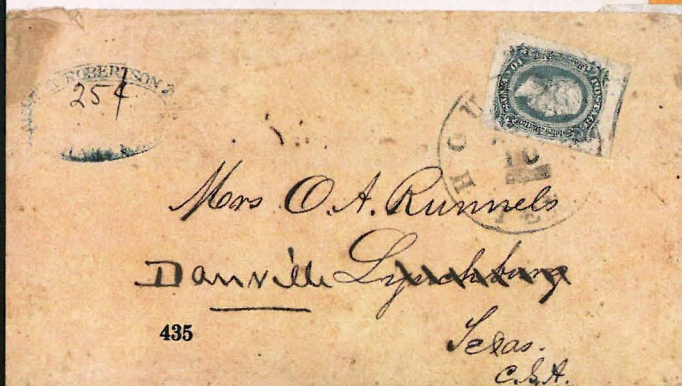 ROBERTSON &
25¢
HOU TEX
10
Mrs O. A. Runnels
Danville Lynchburg
435
Texas.
C.S.A.